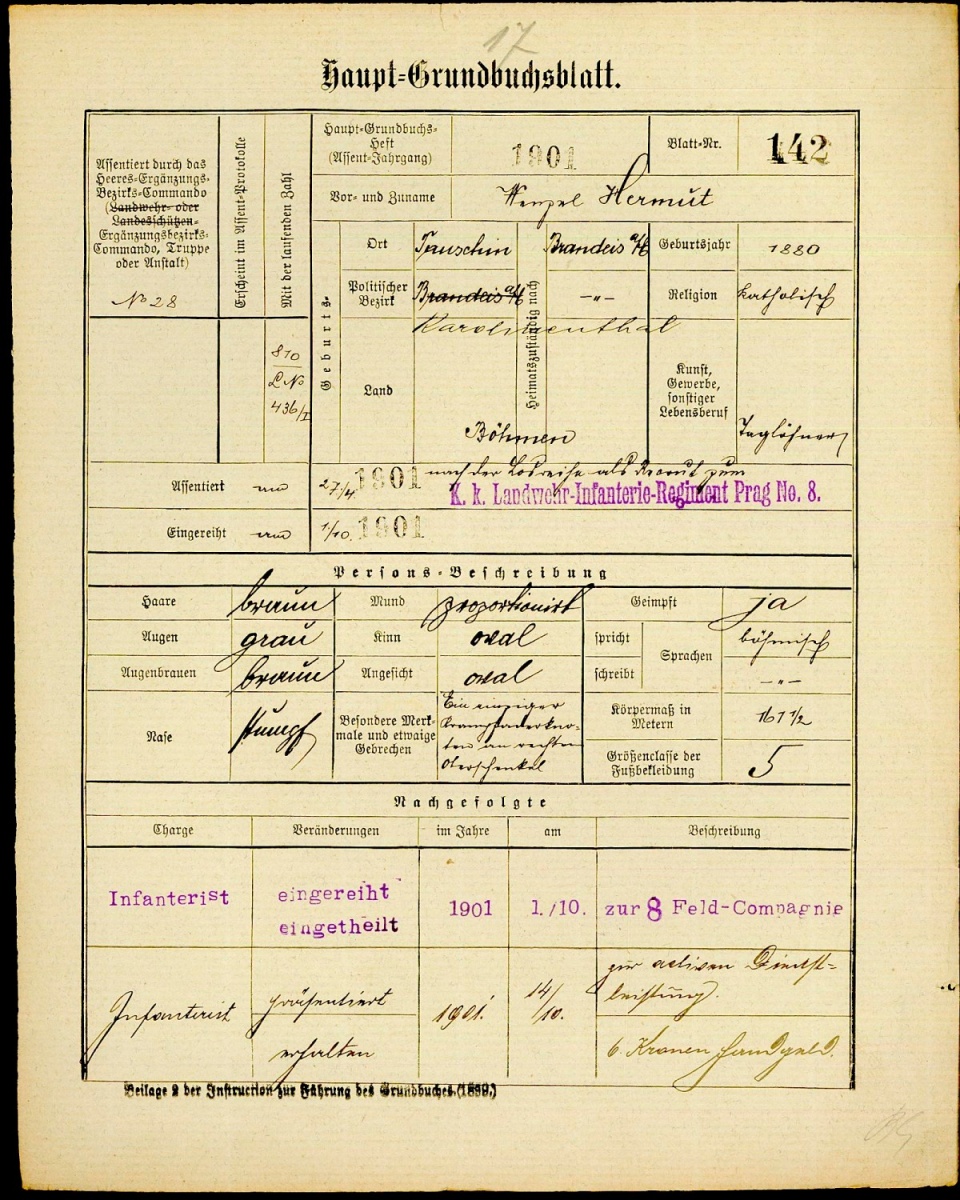 17
Haupt-Grundbuchsblatt.
Assentiert durch das
Heeres-Ergänzungs-
Bezirks-Commando
(Landwehr- oder
Landesschützen-
Ergänzungsbezirks-
Commando, Truppe
oder Anstalt)
No 28
Erscheint im Assent-Protokolle
Mit der laufenden Zahl
810
L No
436/I
Haupt-Grundbuchs-
Heft
(Assent-Jahrgang)
1901
Blatt-Nr.
142
Vor- und Zuname
Wenzel Hermut
Geburts-
Ort
Tauschim
Heimatszuständig nach
Brandeis a/E
Geburtsjahr
1880
Politischer
Bezirk
Brandeis a/E
—"—
Karolinenthal
Religion
katholisch
Land
Böhmen
Kunst,
Gewerbe,
sonstiger
Lebensberuf
Taglöhner
Assentiert am
27/4 1901 nach der Losreihe als Recrut zum
K. k. Landwehr-Infanterie-Regiment Prag No. 8.
Eingereiht am
1/10. 1901
Persons-Beschreibung
Haare braun Mund proportionirt Geimpft ja
Augen grau Kinn oval spricht Sprachen böhmisch
Augenbrauen braun Angesicht oval schreibt —"—
Nase stumpf
Besondere Merk-
male und etwaige
Gebrechen
Ein einziger
Krampfaderkno-
ten am rechten
Oberschenkel
Körpermaß in
Metern
167 1/2
Größenclasse der
Fußbekleidung
5
Nachgefolgte
Charge Veränderungen im Jahre am Beschreibung
Infanterist eingereiht
eingetheilt 1901 1./10. zur 8 Feld-Compagnie
Infanterist präsentiert 1901. 14/10. zur activen Dienst-
leistung.
erhalten 6 Kronen Handgeld.
Beilage 2 der Instruction zur Führung des Grundbuches (1889.)